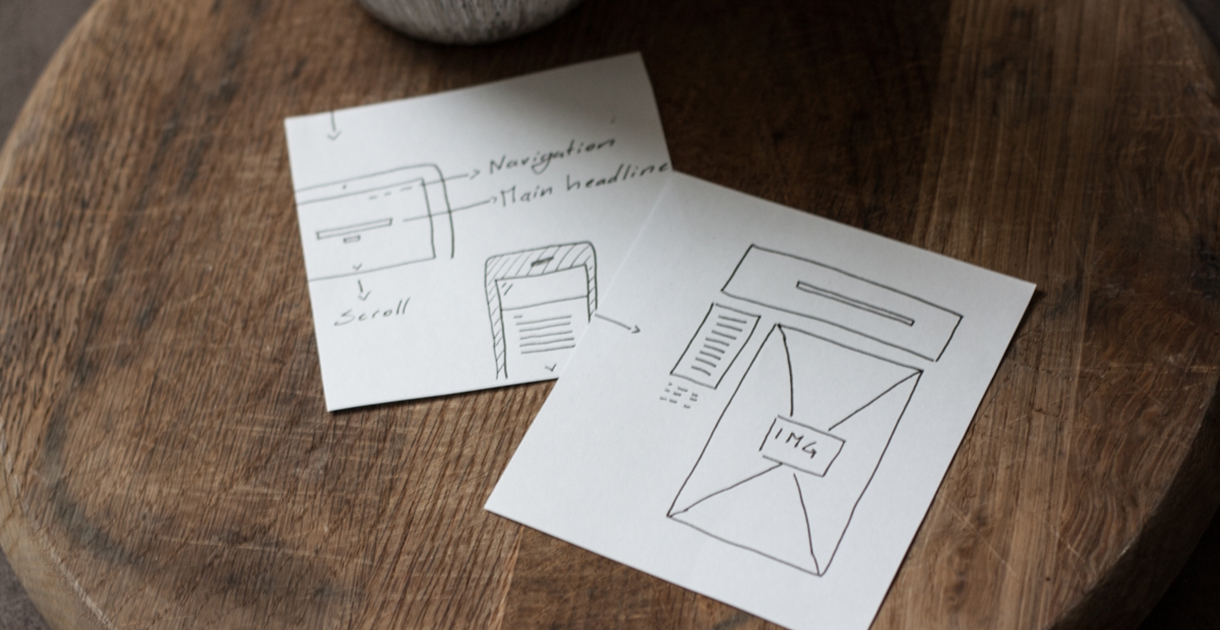 Navigation
Main headline
Scroll
IMG